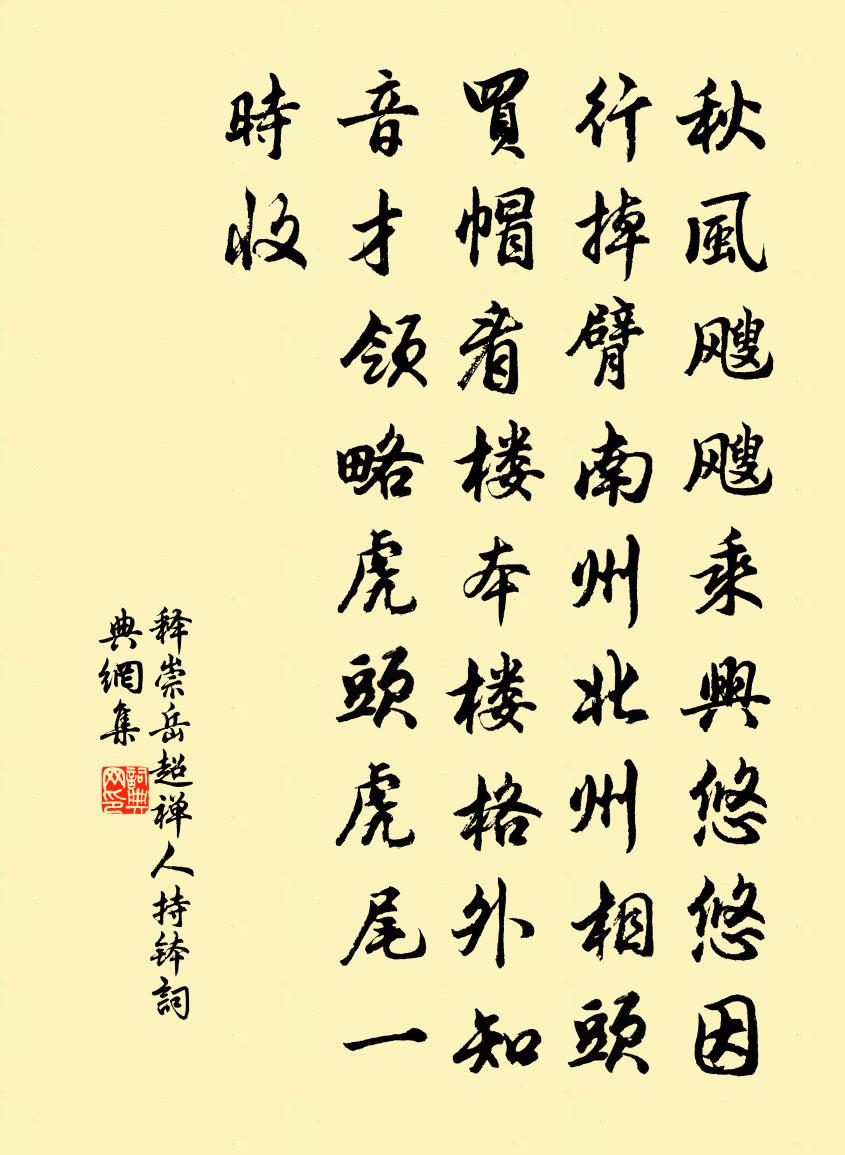 秋風颼颼乘興悠悠因
行掉臂南州北州相頭
買帽看楼本楼格外知
音才领略虎頭虎尾一
時收
释崇岳超禅人持钵詞
典網集
詞典网印